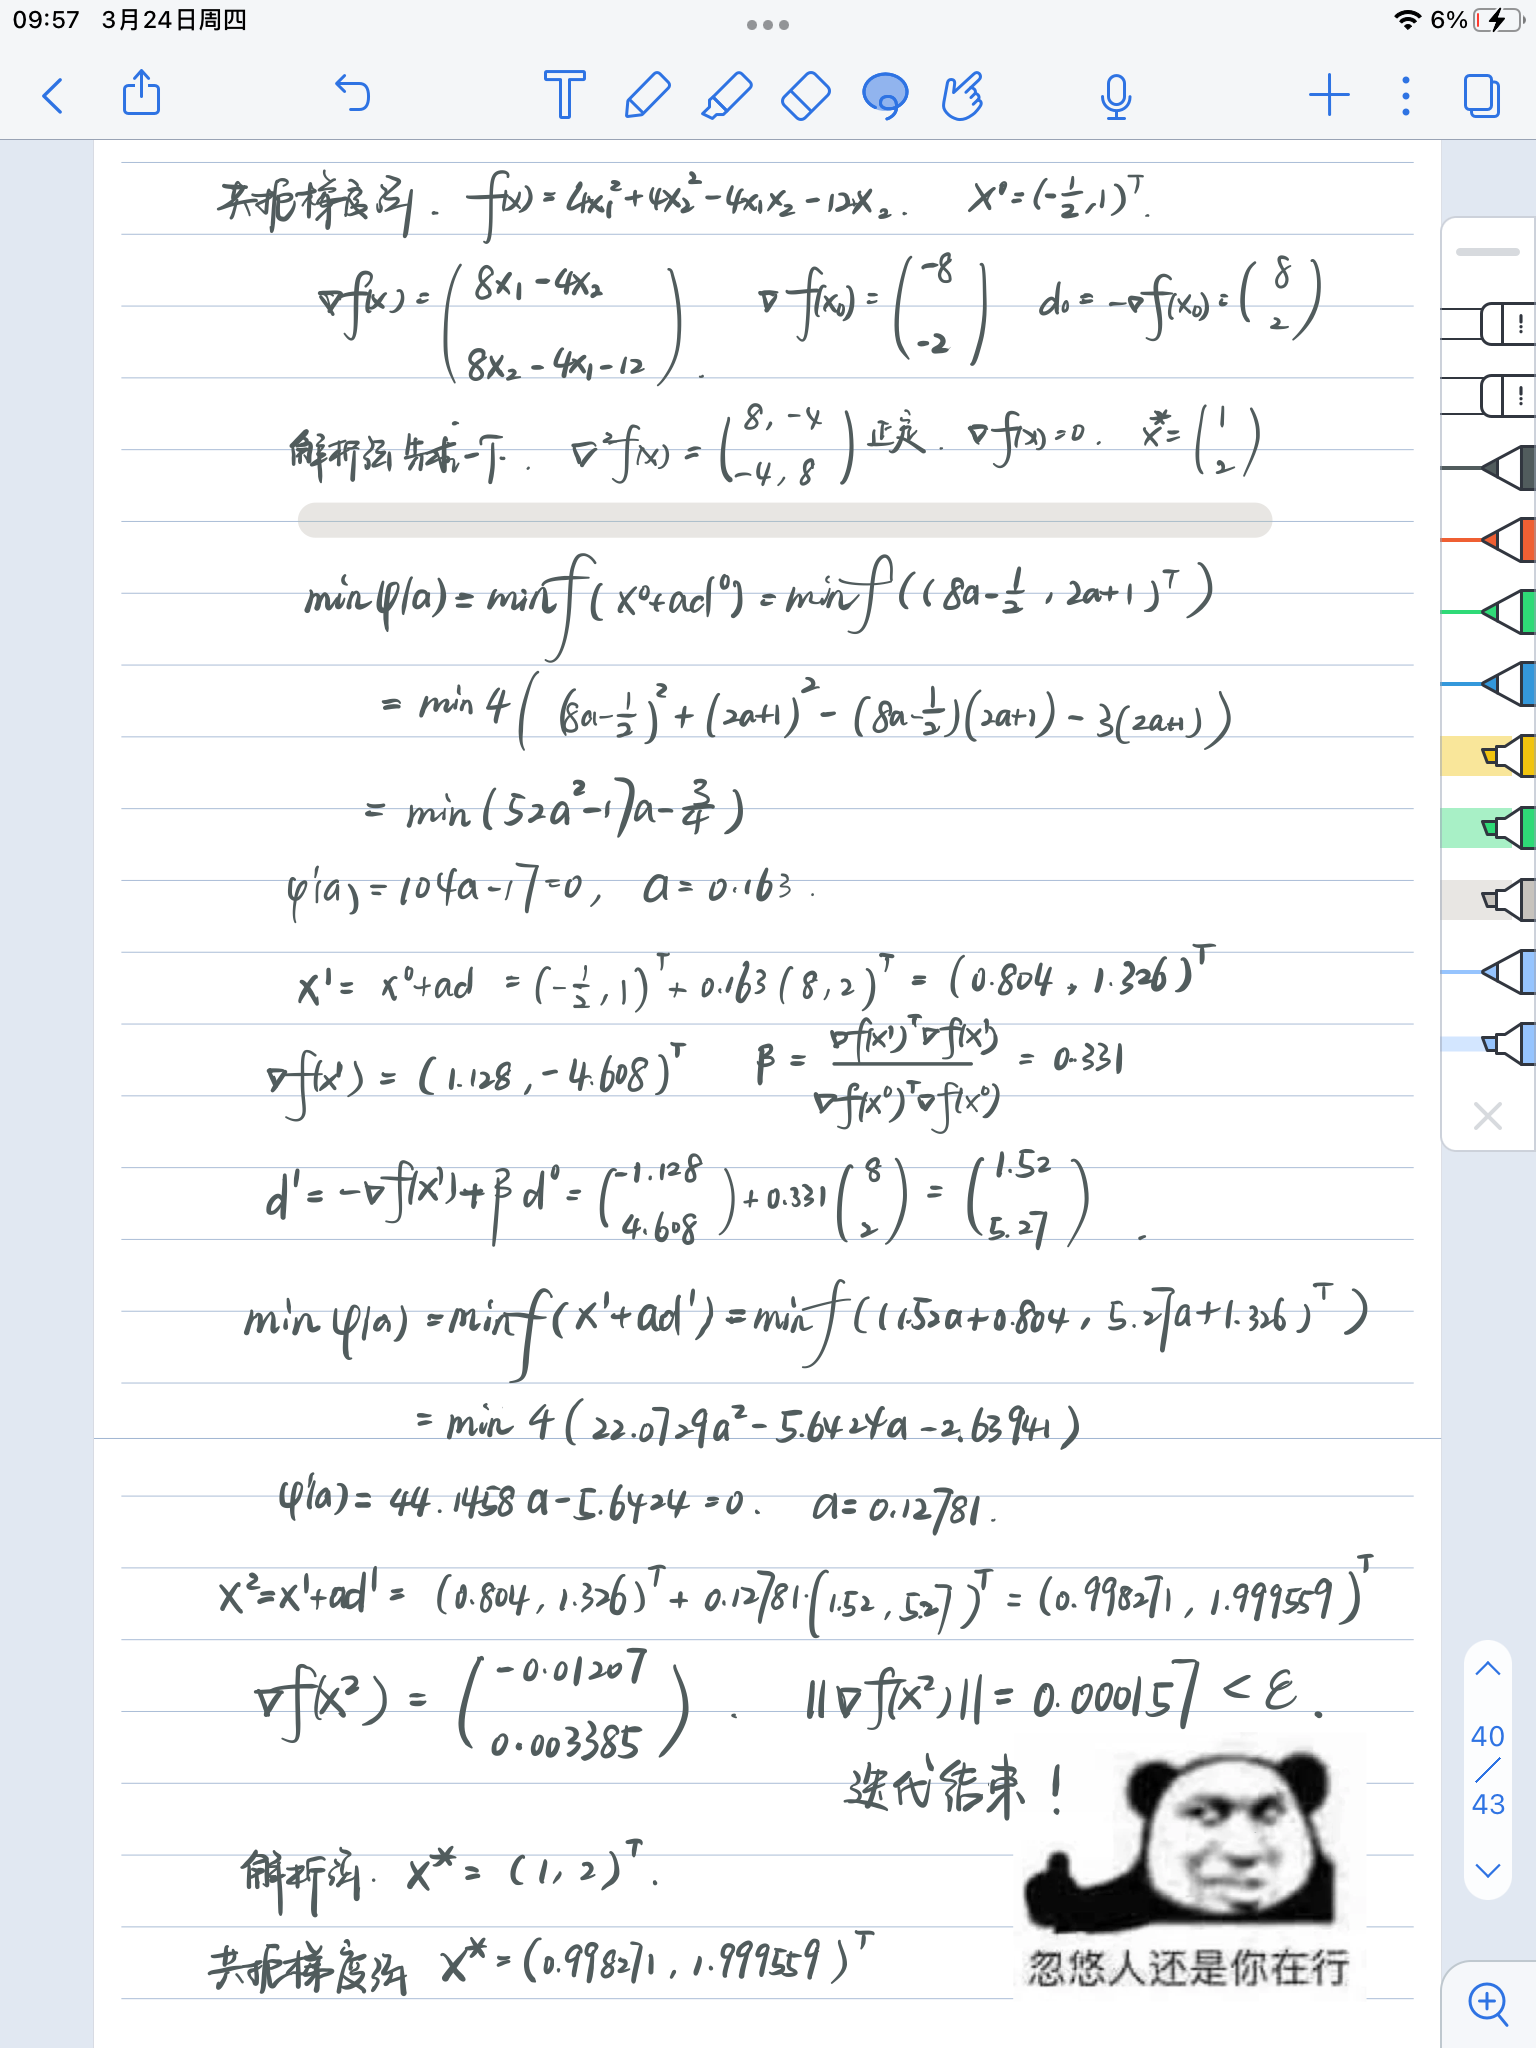 09:57 3月24日周四
6%
共轭梯度法. f(x) = 4x₁² + 4x₂² - 4x₁x₂ - 12x₂. X⁰ = (-1/2, 1)ᵀ.
∇f(x) = (8x₁ - 4x₂; 8x₂ - 4x₁ - 12). ∇f(x₀) = (-8; -2) d₀ = -∇f(x₀) = (8; 2)
解析法先求一下. ∇²f(x) = (8, -4; -4, 8) 正定. ∇f(x) = 0. x* = (1; 2)
min φ(a) = min f(x⁰+ad⁰) = min f((8a - 1/2, 2a+1)ᵀ)
= min 4((8a - 1/2)² + (2a+1)² - (8a - 1/2)(2a+1) - 3(2a+1))
= min (52a² - 17a - 3/4)
φ'(a) = 104a - 17 = 0, a = 0.163.
X¹ = x⁰+ad = (-1/2, 1)ᵀ + 0.163(8, 2)ᵀ = (0.804, 1.326)ᵀ
∇f(x¹) = (1.128, -4.608)ᵀ β = ∇f(x¹)ᵀ∇f(x¹) / ∇f(x⁰)ᵀ∇f(x⁰) = 0.331
d¹ = -∇f(x¹) + β d⁰ = (-1.128; 4.608) + 0.331(8; 2) = (1.52; 5.27).
min φ(a) = min f(x¹+ad¹) = min f((1.52a+0.804, 5.27a+1.326)ᵀ)
= min 4(22.0729a² - 5.6424a - 2.63941)
φ'(a) = 44.1458a - 5.6424 = 0. a = 0.12781.
X² = x¹+ad¹ = (0.804, 1.326)ᵀ + 0.12781·(1.52, 5.27)ᵀ = (0.998271, 1.999559)ᵀ
∇f(x²) = (-0.01207; 0.003385). ||∇f(x²)|| = 0.000157 < ε.
迭代结束!
解析法. X* = (1, 2)ᵀ.
共轭梯度法 X* = (0.998271, 1.999559)ᵀ
忽悠人还是你在行
40
/
43